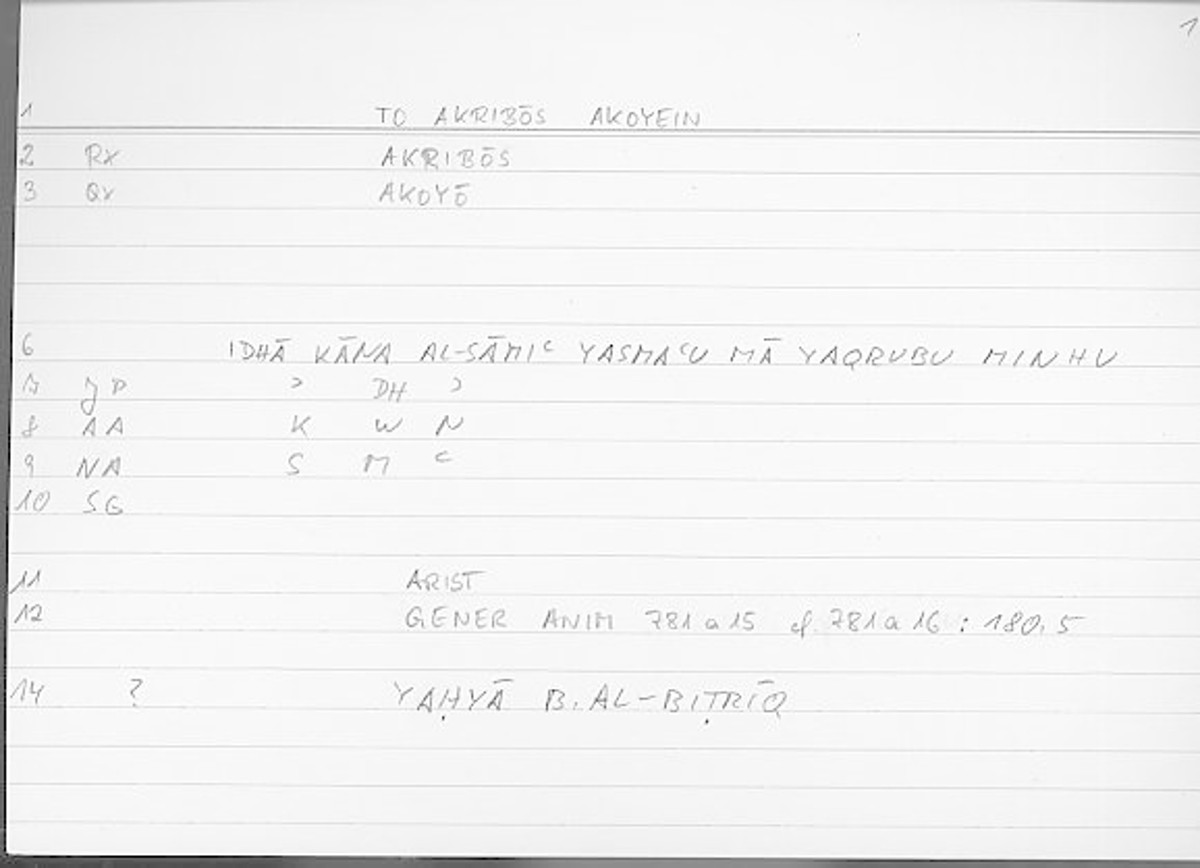 1
1 TO AKRIBŌS AKOYEIN
2 Rx AKRIBŌS
3 Qv AKOYŌ
6 IDHĀ KĀNA AL-SĀMIʿ YASMAʿU MĀ YAQRUBU MINHU
7 JP ʾ DH ʾ
8 AA K W N
9 NA S M ʿ
10 SG
11 ARIST
12 GENER ANIM 781a15 cf. 781a16 : 180,5
14 ? YAḤYĀ B. AL-BIṬRĪQ